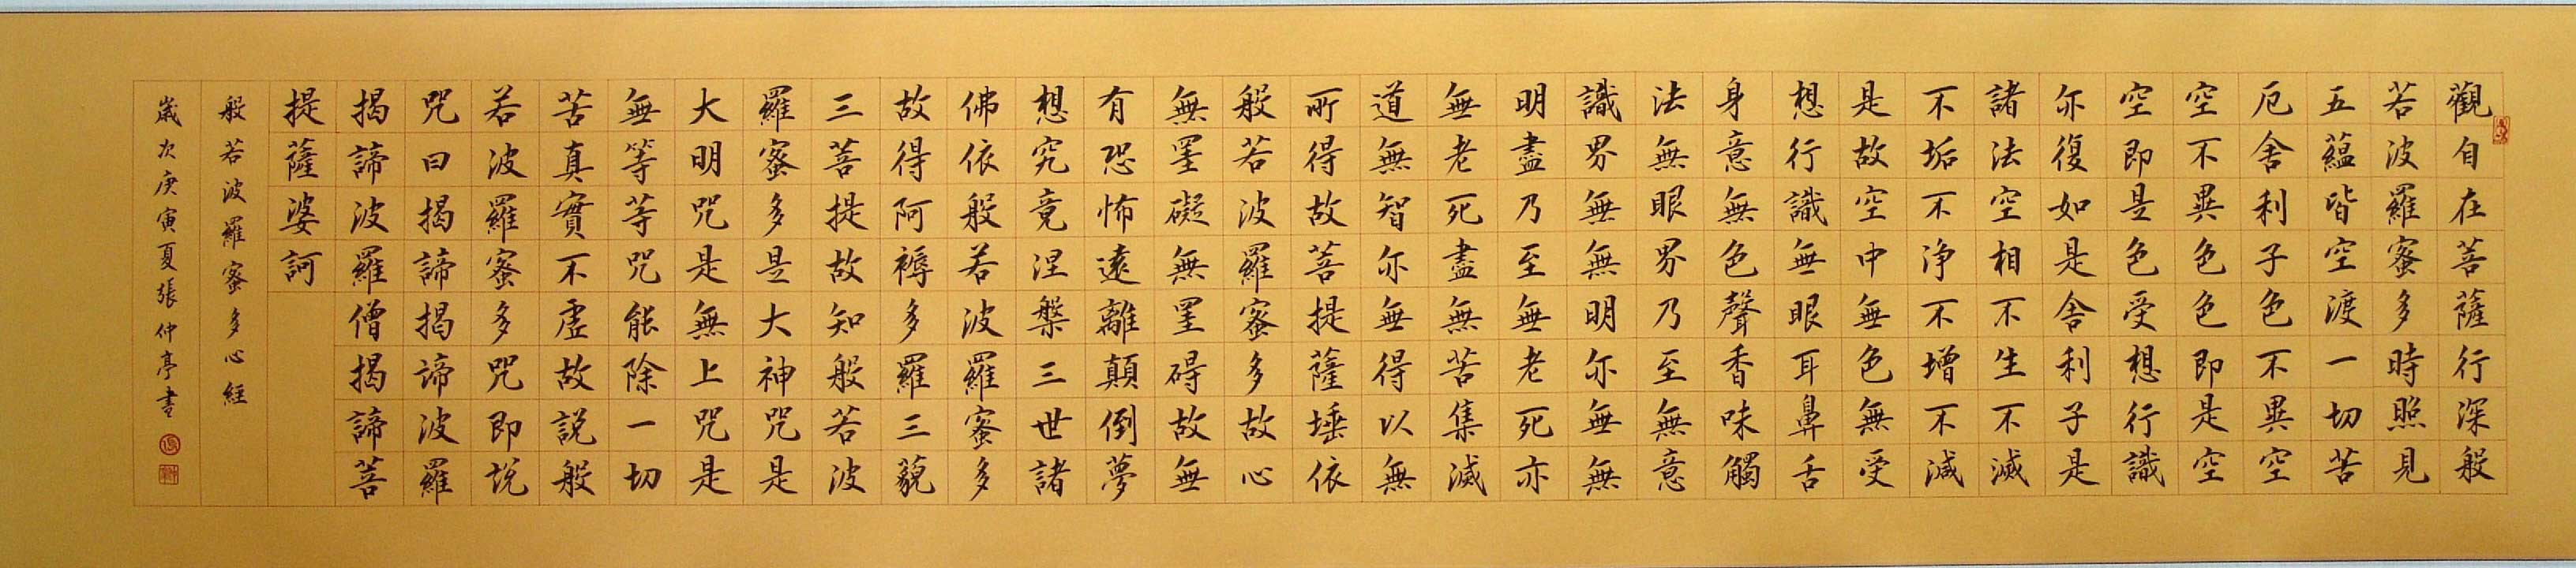 觀自在菩薩行深般
若波羅蜜多時照見
五蘊皆空渡一切苦
厄舍利子色不異空
空不異色色即是空
空即是色受想行識
亦復如是舍利子是
諸法空相不生不滅
不垢不净不增不減
是故空中無色無受
想行識無眼耳鼻舌
身意無色聲香味觸
法無眼界乃至無意
識界無無明亦無無
明盡乃至無老死亦
無老死盡無苦集滅
道無智亦無得以無
所得故菩提薩埵依
般若波羅蜜多故心
無罣礙無罣碍故無
有恐怖遠離顛倒夢
想究竟涅槃三世諸
佛依般若波羅蜜多
故得阿褥多羅三藐
三菩提故知般若波
羅蜜多是大神咒是
大明咒是無上咒是
無等等咒能除一切
苦真實不虛故說般
若波羅蜜多咒即說
咒曰揭諦揭諦波羅
揭諦波羅僧揭諦菩
提薩婆訶
般若波羅蜜多心經
歲次庚寅夏張仲亭書